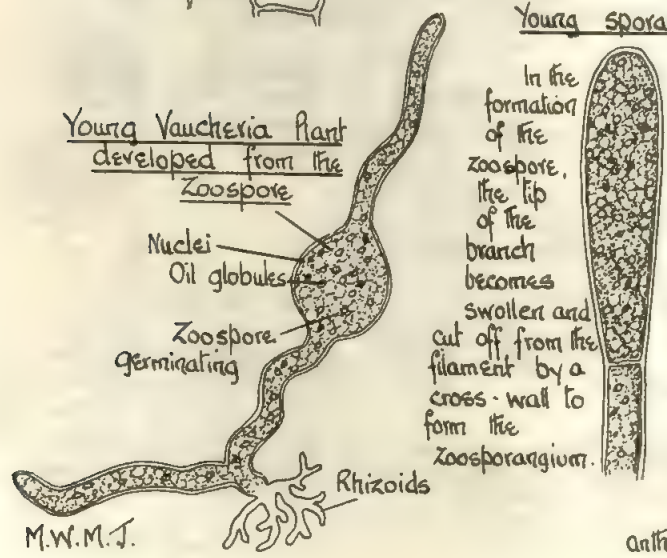 Young spora
Young Vaucheria Plant
developed from the
Zoospore
Nuclei
Oil globules
Zoospore
germinating
Rhizoids
M.W.M.J.
In the
formation
of the
zoospore,
the tip
of the
branch
becomes
swollen and
cut off from the
filament by a
cross-wall to
form the
zoosporangium.
anth